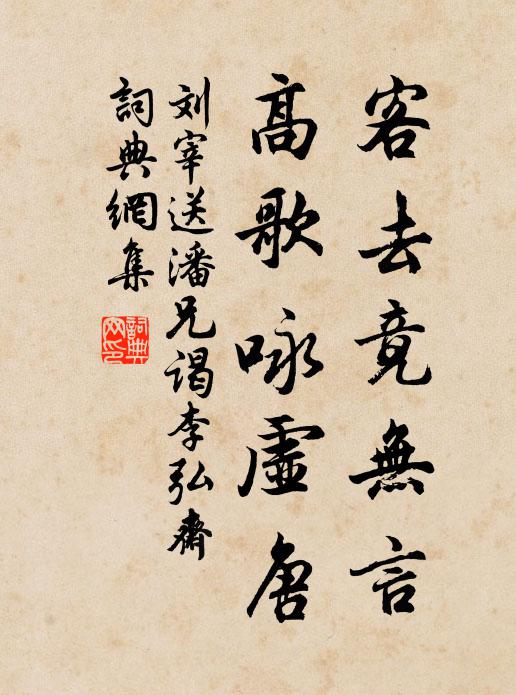 客去竟無言
高歌咏虛唐
刘宰送潘兄謁李弘齋
詞典網集
詞典網印